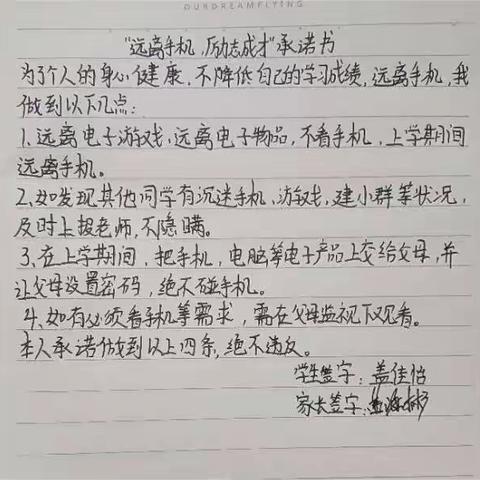 OURDREAMFLYING
"远离手机,励志成才"承诺书
为了个人的身心健康,不降低自己的学习成绩,远离手机,我
做到以下几点:
1、远离电子游戏、远离电子物品,不看手机,上学期间
远离手机。
2、如发现其他同学有沉迷手机、游戏,建小群等状况,
及时上报老师,不隐瞒。
3、在上学期间,把手机,电脑等电子产品上交给父母,并
让父母设置密码,绝不碰手机。
4、如有必须看手机等需求,需在父母监视下观看。
本人承诺做到以上四条,绝不违反。
学生签字:盖佳怡
家长签字: